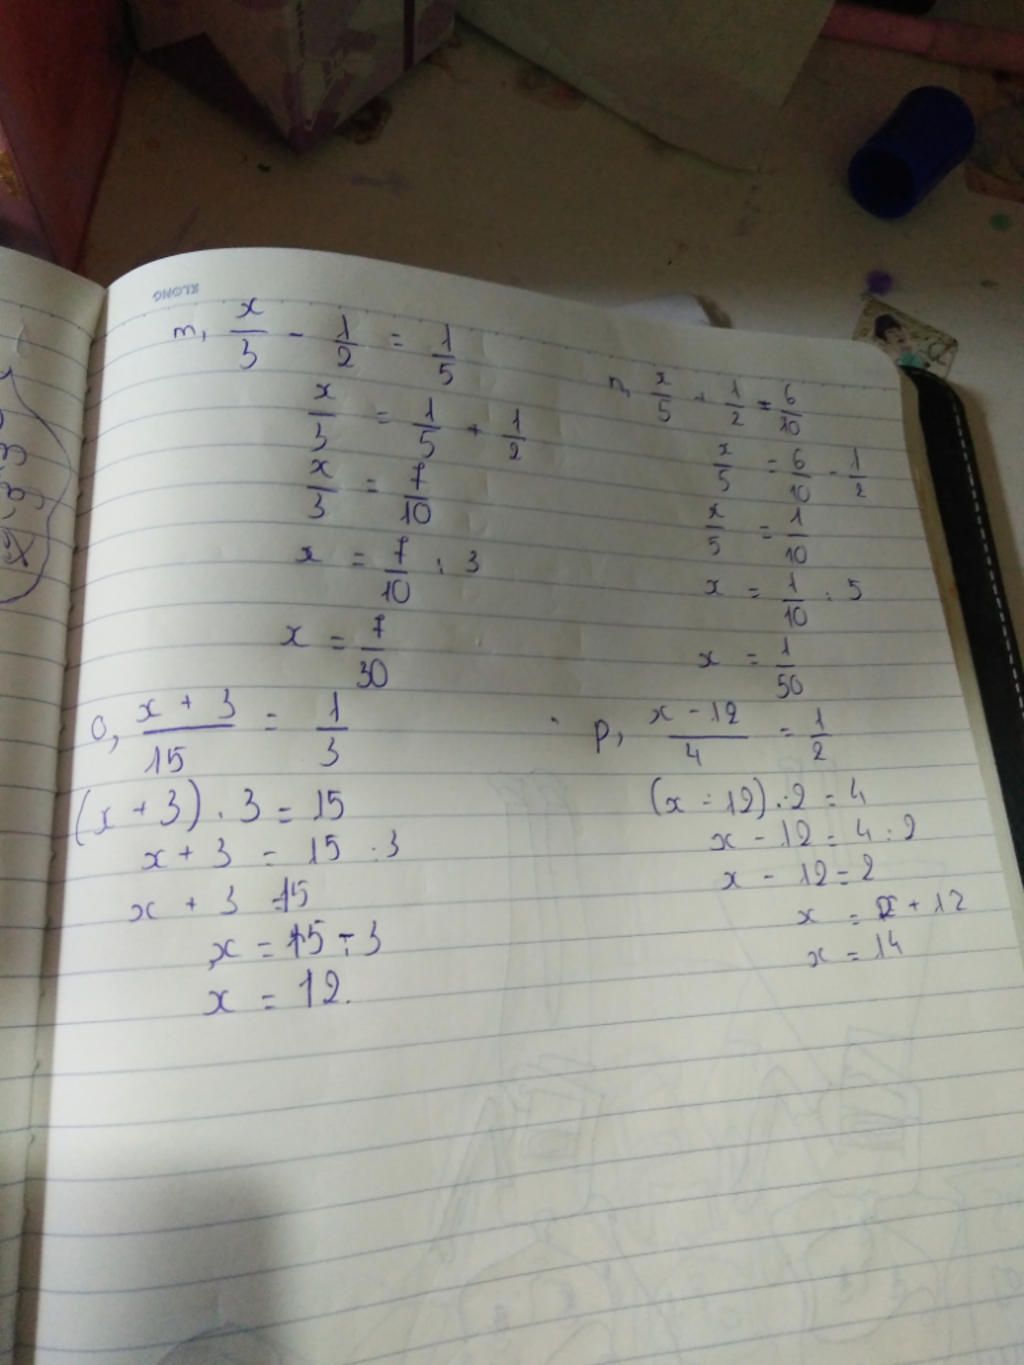 KLONG
m, x/3 - 1/2 = 1/5
x/3 = 1/5 + 1/2
x/3 = 7/10
x = 7/10 : 3
x = 7/30
n, x/5 + 1/2 = 6/10
x/5 = 6/10 - 1/2
x/5 = 1/10
x = 1/10 : 5
x = 1/50
o, x + 3/15 = 1/3
(x + 3) . 3 = 15
x + 3 = 15 : 3
x + 3 = 15
x = 15 - 3
x = 12.
p, x - 12/4 = 1/2
(x - 12) . 2 = 4
x - 12 = 4 : 2
x - 12 = 2
x = 2 + 12
x = 14